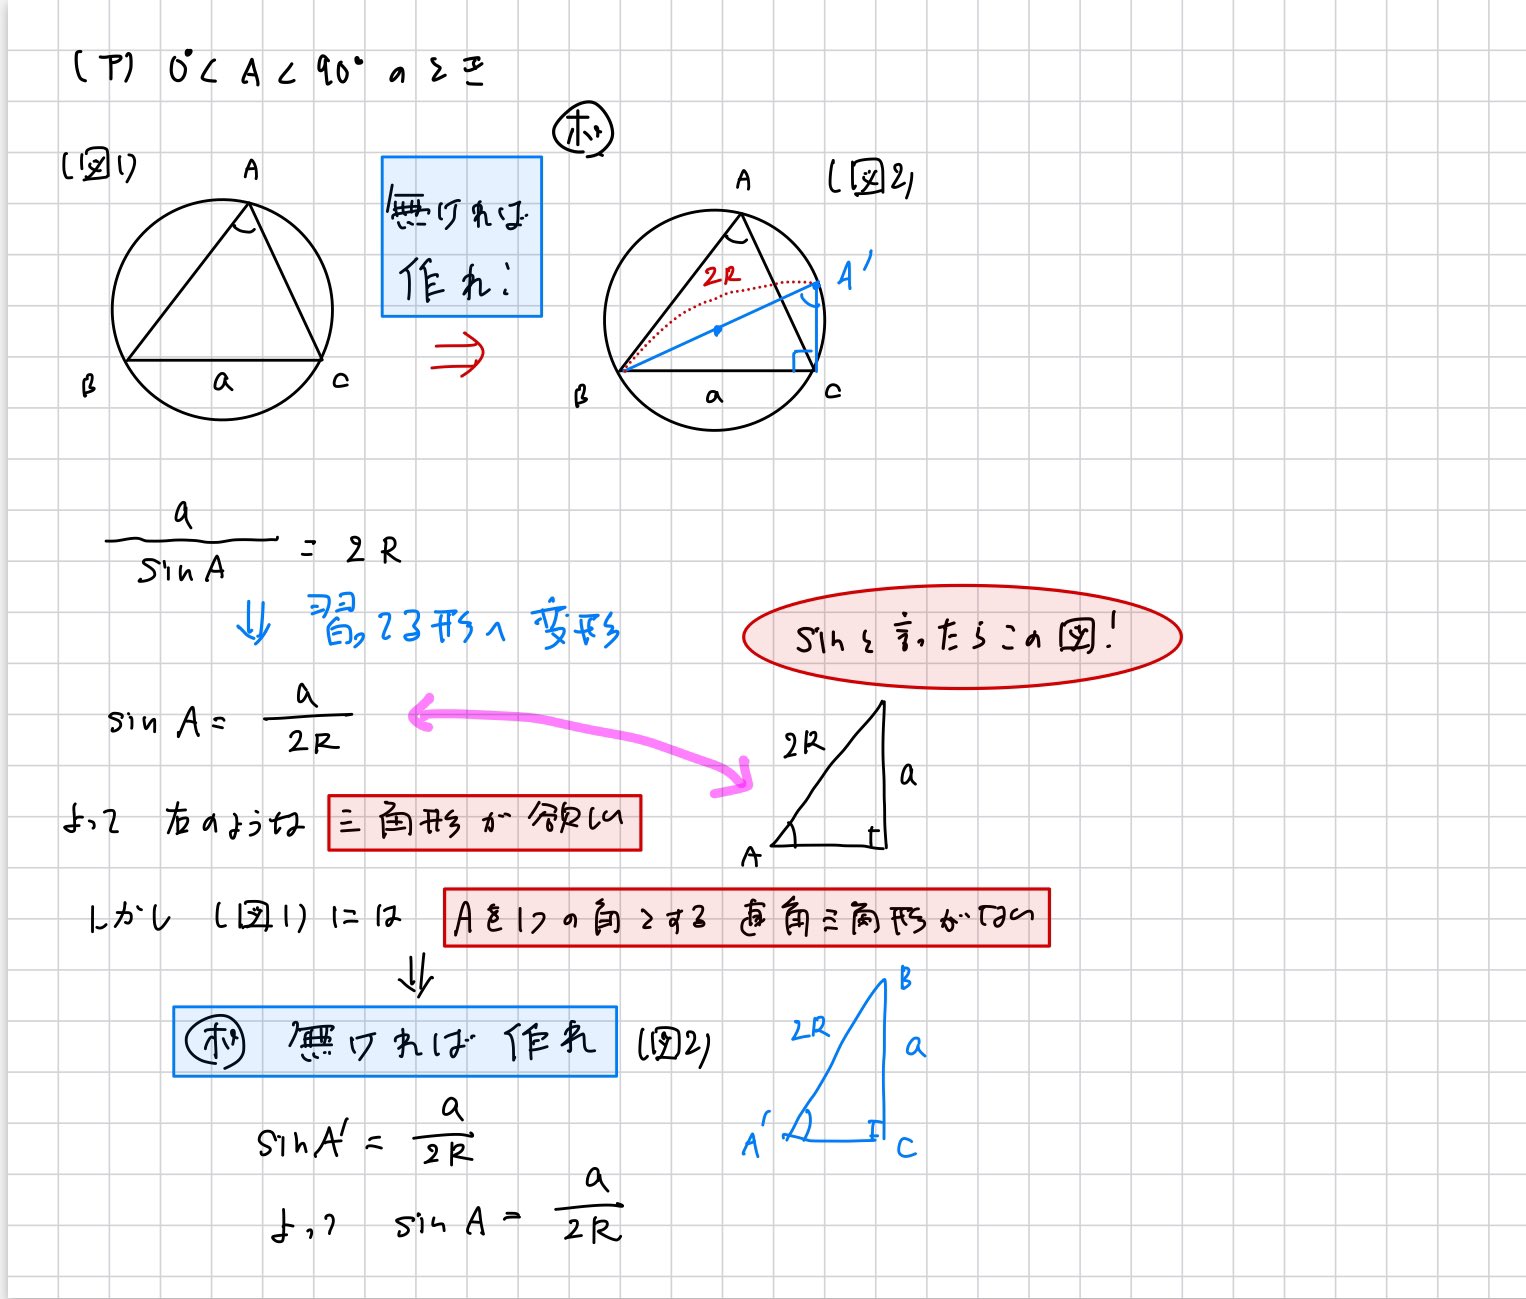 (ア) 0°< A < 90° のとき
(図1)
A
B
a
C
無ければ
作れ!
⇒
ポ
(図2)
A
A'
2R
B
a
C
a/sin A = 2R
⇓ 習ってる形へ変形
sinと言ったらこの図!
sin A = a/2R
2R
a
A
よって 右のような 三角形が欲しい
しかし (図1) には Aを1つの角とする 直角三角形がない
⇓
ポ 無ければ 作れ (図2)
B
2R
a
A'
C
sin A' = a/2R
よって sin A = a/2R